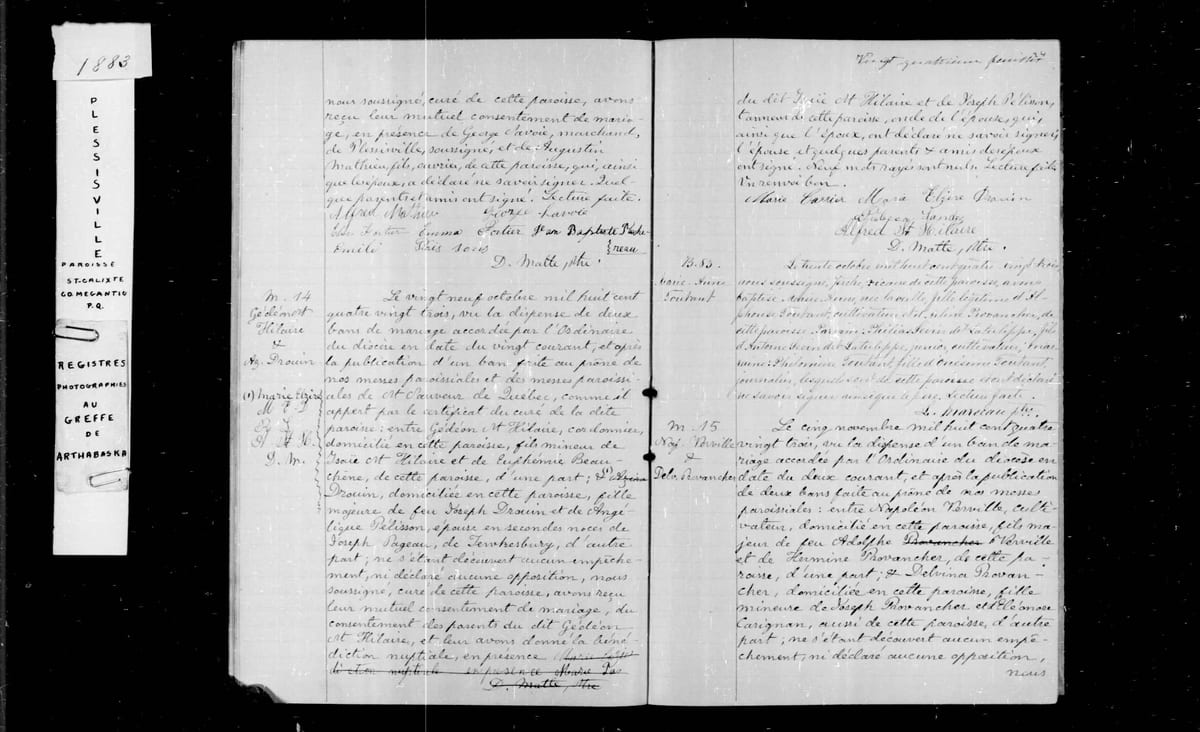 1883
PLESSISVILLE
PAROISSE
ST-CALIXTE
CO. MEGANTIC
P.Q.
REGISTRES
PHOTOGRAPHIES
AU
GREFFE
DE
ARTHABASKA
nous soussigné, curé de cette paroisse, avons
reçu leur mutuel consentement de maria-
ge, en présence de George Savoie, marchand,
de Plessisville, soussigné, et de Augustin
Mathieu, fils, ouvrier, de cette paroisse, qui, ainsi
que les époux, a déclaré ne savoir signer. Quel-
que parents et amis ont signé. Lecture faite.
Alfred Mathieu George Savoie
Fortier Emma Fortier Jean Baptiste
reau
D. Matte, Ptre.
M. 14
Gédéon St
Hilaire
&
Az. Drouin
(1) Marie Elzire
M E D
A St H.
D. M.
Le vingt neuf octobre mil huit cent
quatre vingt trois, vu la dispense de deux
bans de mariage accordée par l'Ordinaire
du diocèse en date du vingt courant, et après
la publication d'un ban faite au prône de
nos messes paroissiales et des messes paroissi-
ales de St Sauveur de Québec, comme il
appert par le certificat du curé de la dite
paroisse: entre Gédéon St Hilaire, cordonnier,
domicilié en cette paroisse, fils mineur de
Isaïe St Hilaire et de Euphémie Beau-
chêne, de cette paroisse, d'une part; &
Drouin, domiciliée en cette paroisse, fille
majeure de feu Joseph Drouin et de Angé-
lique Pélisson, épouse en secondes noces de
Joseph Pageau, de Tewkesbury, d'autre
part; ne s'étant découvert aucun empêche-
ment, ni déclaré aucune opposition, nous
soussigné, curé de cette paroisse, avons reçu
leur mutuel consentement de mariage, du
consentement des parents du dit Gédéon
St Hilaire, et leur avons donné la béné-
diction nuptiale, en présence
diction nuptiale en présence Marie
D. Matte, Ptre
Vingt quatrième feuillet
du dit Isaïe St Hilaire et de Joseph Pélisson,
tanneur de cette paroisse, oncle de l'épouse, qui,
ainsi que l'époux, ont déclaré ne savoir signer;
l'épouse et quelques parents & amis des époux
ont signé. Neuf mots rayés sont nuls. Lecture faite.
Un renvoi bon.
Marie Carrier Marie Elzire Drouin
Alfred St Hilaire
D. Matte, Ptre.
B. 83.
Marie-Anna
Toutant
Le trente octobre mil huit cent quatre vingt trois
nous soussigné, prêtre, vicaire de cette paroisse, avons
baptisé Marie Anna, née la veille, fille légitime d'Al-
phonse Toutant, cultivateur, et de Provancher, de
cette paroisse. Parrain:
d'Antoine junior, cultivateur, mar-
raine: Philomène Toutant, fille d'Onésime Toutant,
journalier, lesquels sont de cette paroisse et ont déclaré
ne savoir signer ainsi que le père. Lecture faite.
Marceau ptre.
M. 15
Nap. Verville
&
Delv. Provancher
Le cinq novembre mil huit cent quatre
vingt trois, vu la dispense d'un ban de ma-
riage accordée par l'Ordinaire du diocèse en
date du deux courant, et après la publication
de deux bans faite au prône de nos messes
paroissiales: entre Napoléon Verville, culti-
vateur, domicilié en cette paroisse, fils ma-
jeur de feu Adolphe Provancher Verville
et de Hermine Provancher, de cette pa-
roisse, d'une part; & Delvina Provan-
cher, domiciliée en cette paroisse, fille
mineure de Joseph Provancher et Eléonore
Carignan, aussi de cette paroisse, d'autre
part; ne s'étant découvert aucun empê-
chement, ni déclaré aucune opposition,
nous